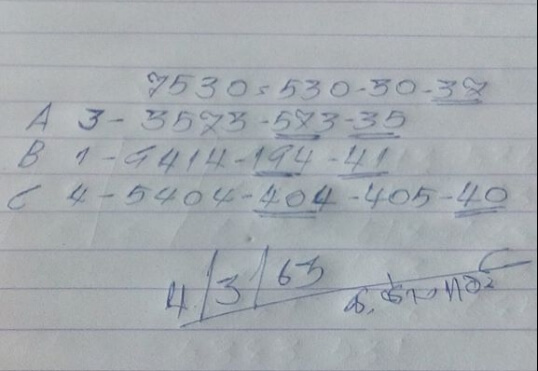 7530 = 530-30-37
A 3- 3573-573-35
B 1-9414-194-41
C 4-5404-404-405-40
4/3/63